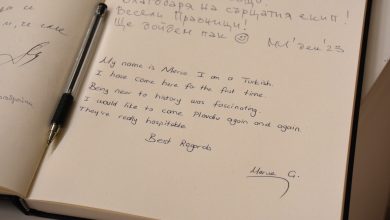 Благодаря на сърцатия екип!
Весели Празници!
Ще дойдем пак ☺
ММ' дек' 23
My name is Merve I am a Turkish.
I have come here fo the first time
Being near to history was fascinating.
I would like to come Plovdiv again and again.
They're really hospitable.
Best Regards
Merve G.